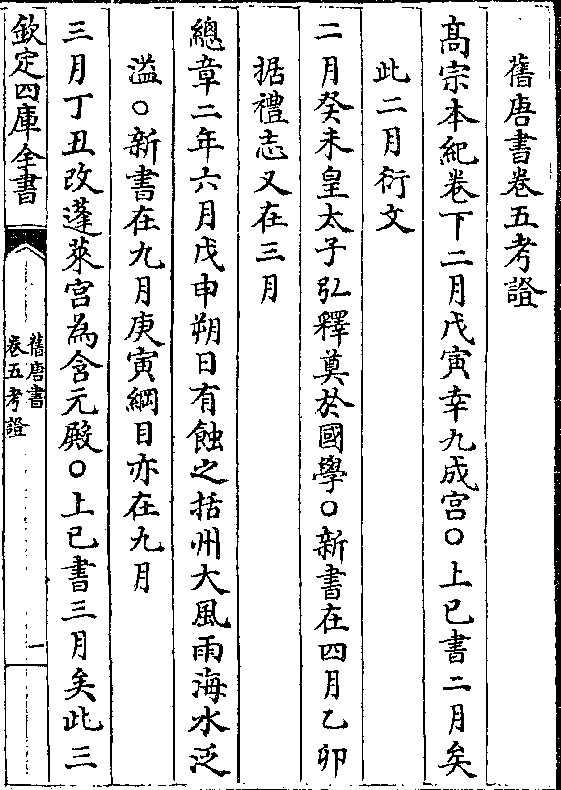 舊唐書卷五考證
高宗本紀卷下二月戊寅幸九成宮○上已書二月矣
此二月衍文
二月癸未皇太子弘釋奠於國學○新書在四月乙卯
据禮志又在三月
總章二年六月戊申朔日有蝕之括州大風雨海水泛
溢○新書在九月庚寅綱目亦在九月
三月丁丑改蓬萊宮為含元殿○上已書三月矣此三
欽定四庫全書
舊唐書
卷五考證
一